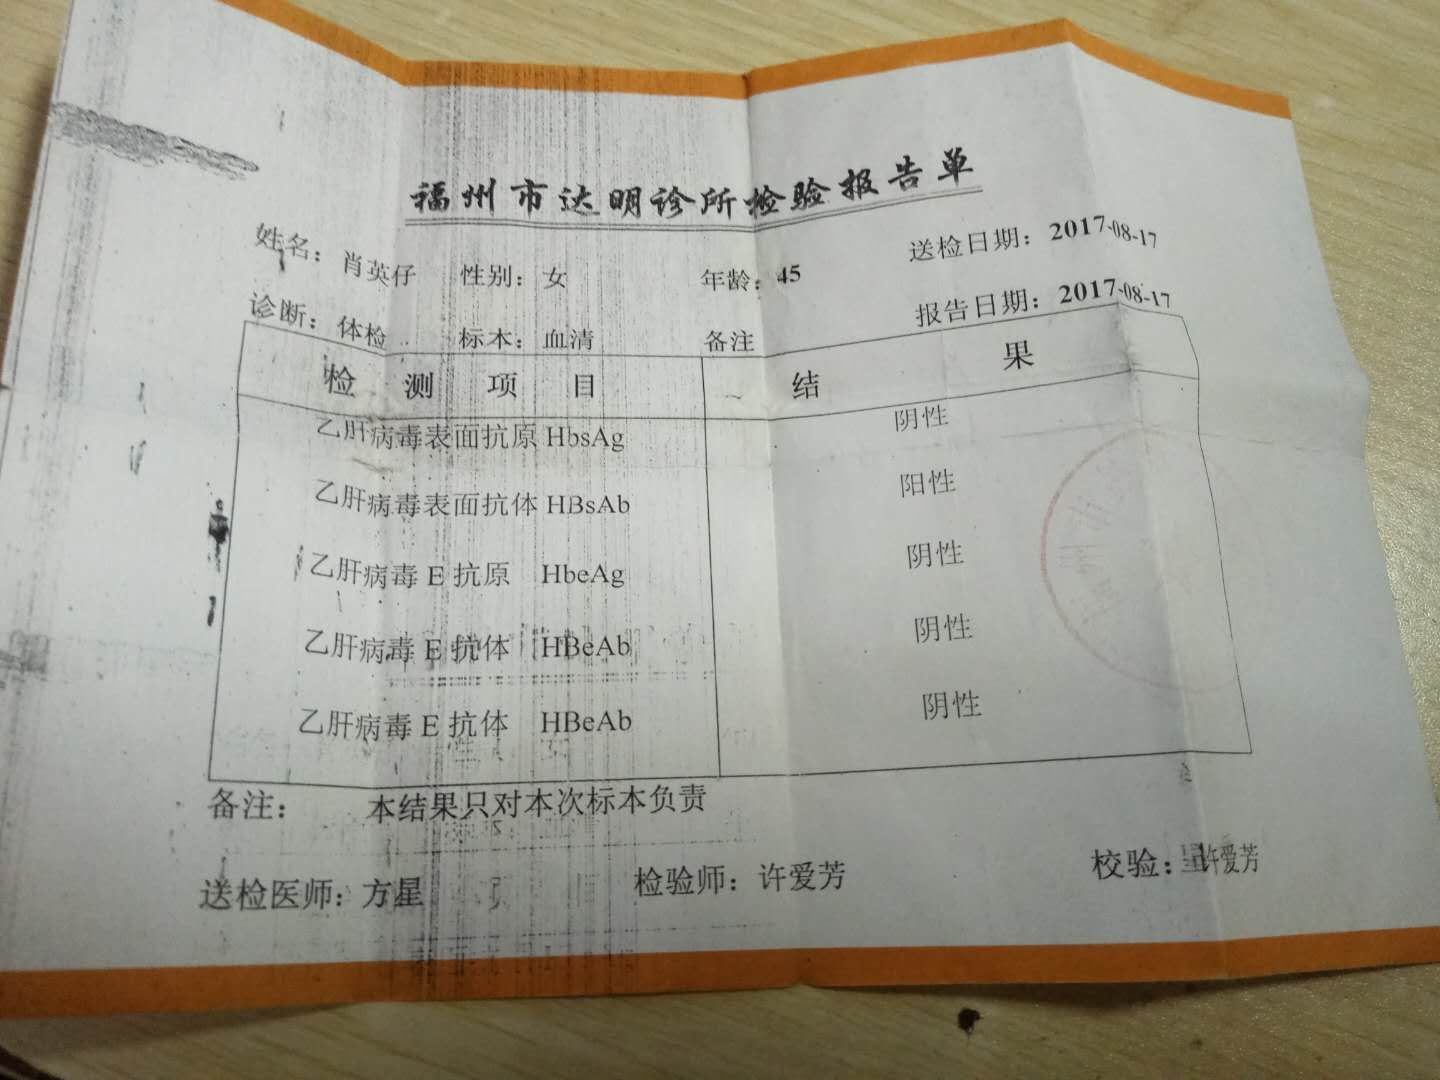 福州市达明诊所检验报告单
姓名：肖英仔 性别：女 年龄：45 送检日期：2017-08-17
诊断：体检 标本：血清 备注 报告日期：2017-08-17
检测项目 结果
乙肝病毒表面抗原 HbsAg 阴性
乙肝病毒表面抗体 HBsAb 阳性
乙肝病毒 E 抗原 HbeAg 阴性
乙肝病毒 E 抗体 HBeAb 阴性
乙肝病毒 E 抗体 HBeAb 阴性
备注： 本结果只对本次标本负责
送检医师：方星 检验师：许爱芳 校验：许爱芳